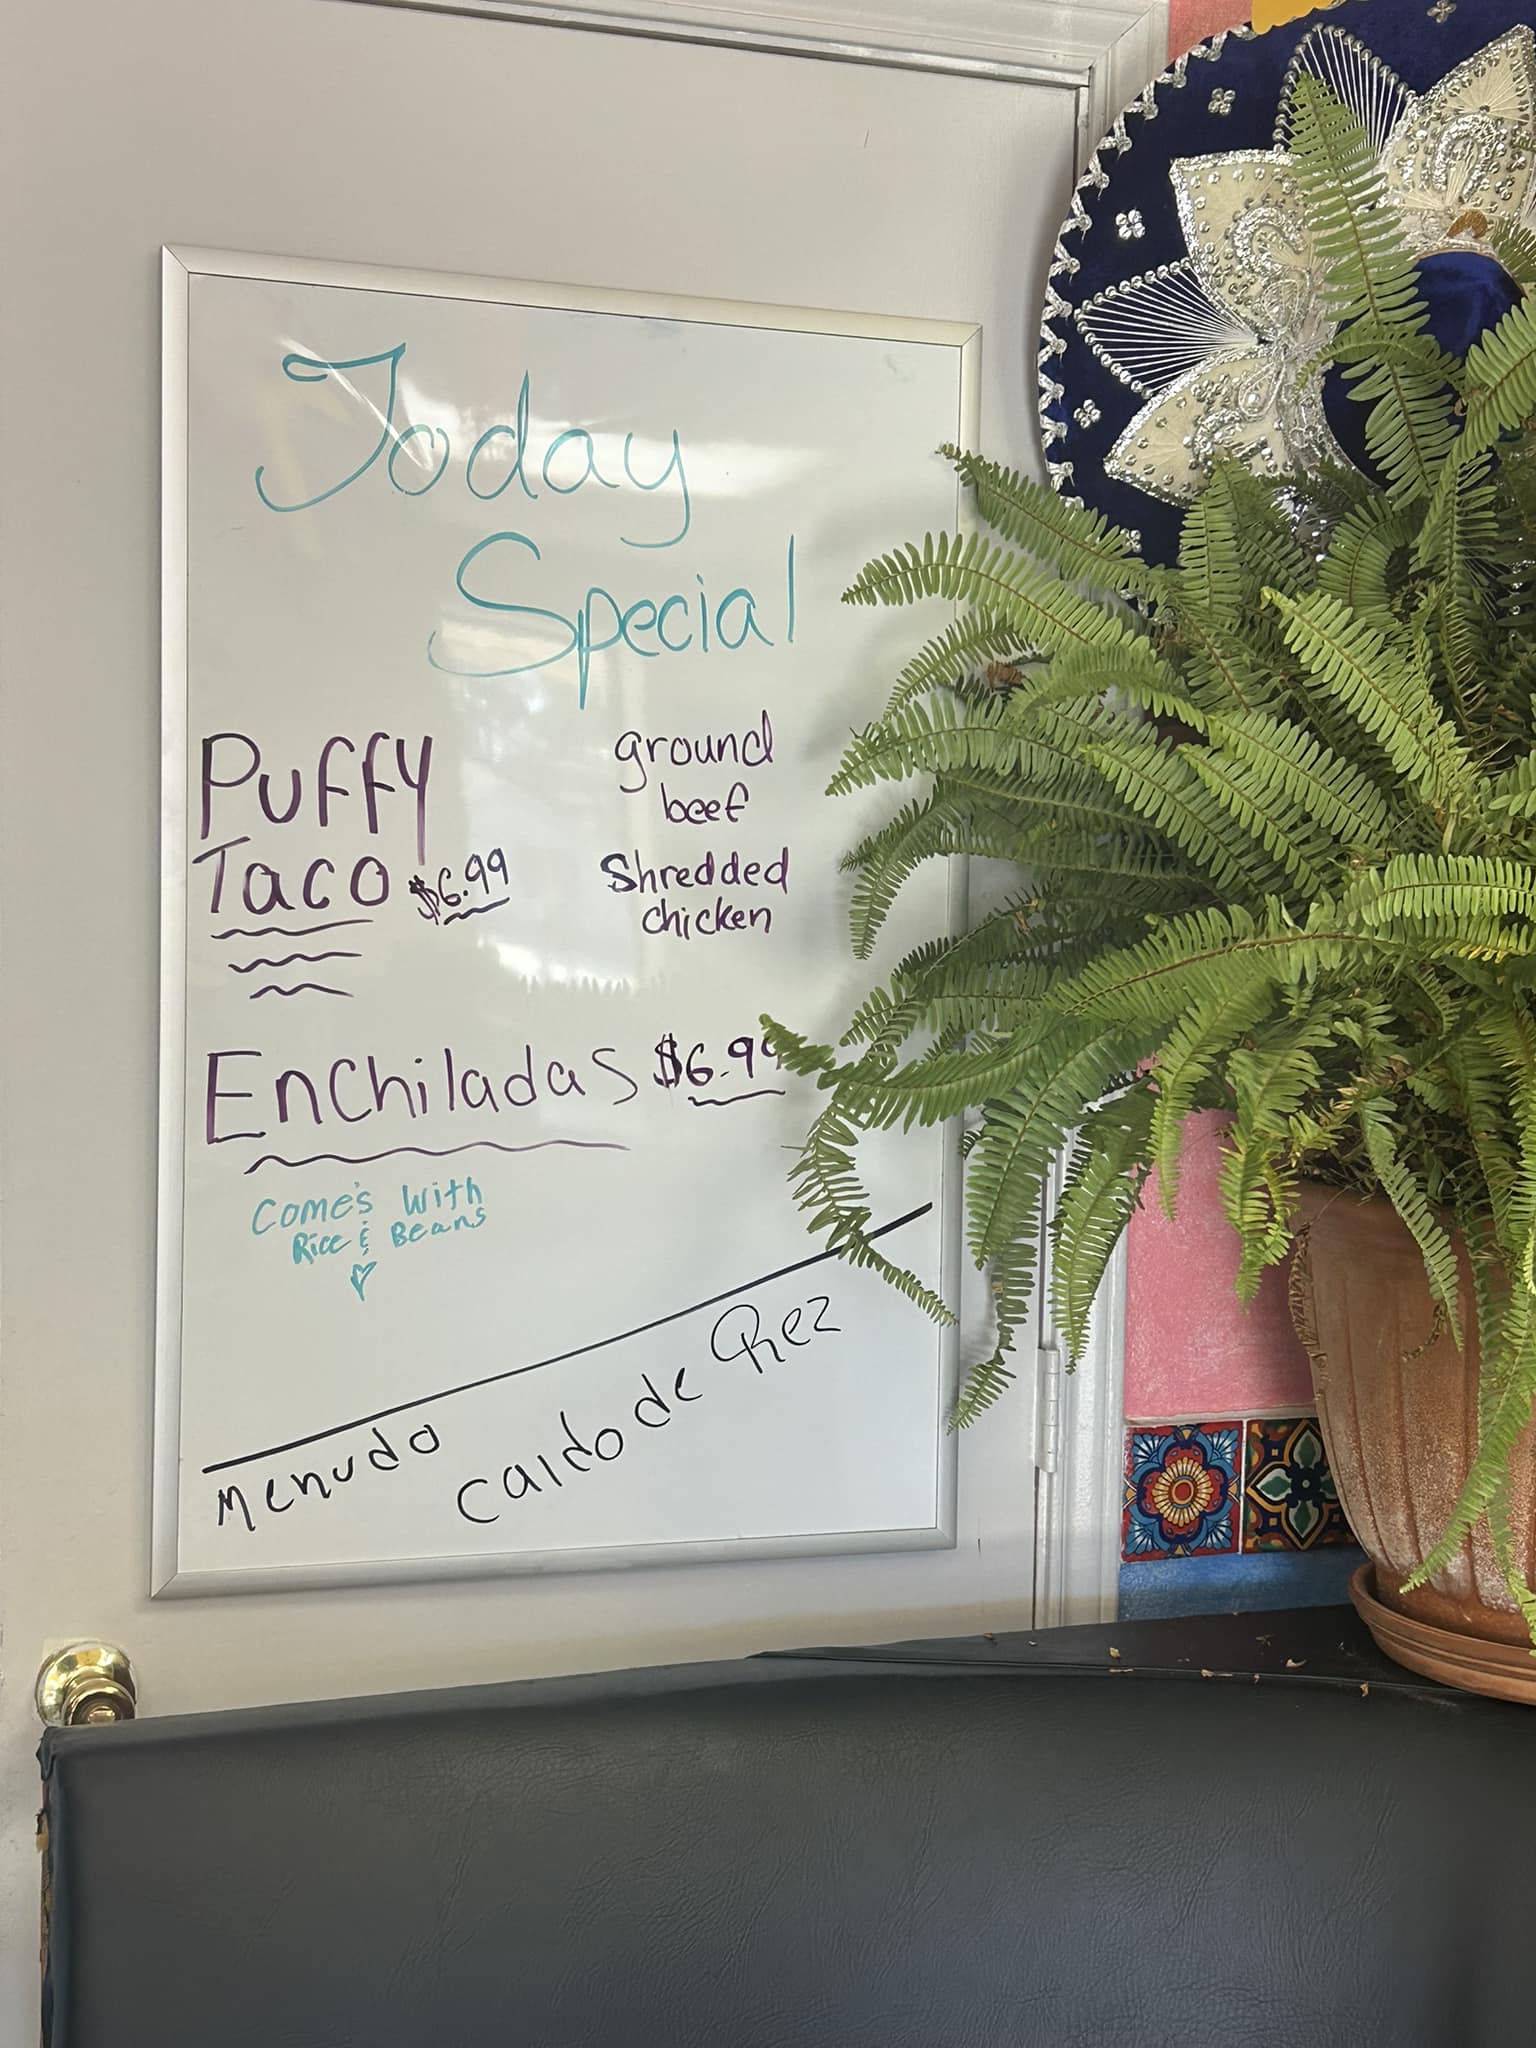 Today
Special
Puffy
Taco $6.99
ground
beef
Shredded
chicken
Enchiladas $6.99
Come's With
Rice & Beans
Menudo
Caldo de Rez